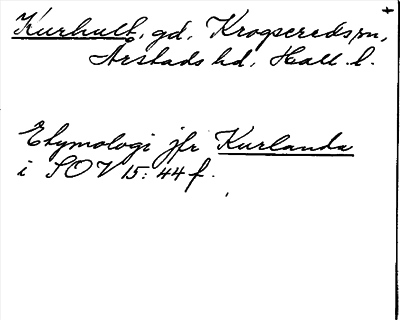 Kurhult, gd, Krogsereds sn,
Årstads hd, Hall. l.
Etymologi jfr Kurlanda
i SOV 15: 44 f.